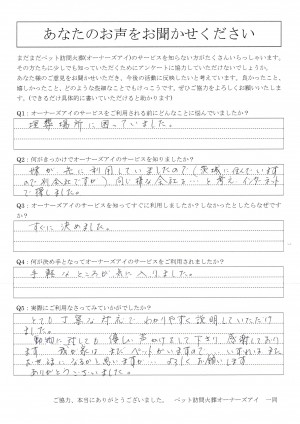 あなたのお声をお聞かせください
まだまだペット訪問火葬(オーナーズアイ)のサービスを知らない方がたくさんいらっしゃいます。
その方たちに少しでも知っていただくためにアンケートに協力していただけないでしょうか。
あなた様のご意見をお聞かせいただき、今後の活動に反映したいと考えています。良かったこと、
嬉しかったこと、どのような些細なことでもけっこうです。ぜひご協力をよろしくお願いいたしま
す。(できるだけ具体的に書いていただけると助かります)
Q1：オーナーズアイのサービスをご利用される前にどんなことに悩んでいましたか？
埋葬場所に困っていました。
Q2：何がきっかけでオーナーズアイのサービスを知りましたか？
が 先に利用していましたので(茨城に住んでいます
ので別会社ですが)、同じ様な会社を…と考え インターネット
で探しました。
Q3：オーナーズアイのサービスを知ってすぐに利用しましたか？しなかったとしたらなぜです
か？
すぐに 決めました。
Q4：何が決め手となってオーナーズアイのサービスをご利用されましたか？
手軽なところが気に入りました。
Q5：実際にご利用なさってみていかがでしたか？
とても丁寧な対応で わかりやすく説明していただけ
ました。
動物に対しても 優しい声かけをして下さり、感謝しており
ます。我が家は まだ ペットがいますので…、いずれまた
お世話になるかと思いますが… よろしくお願いします
ありがとうございました。
ご協力、本当にありがとうございました。 ペット訪問火葬オーナーズアイ 一同